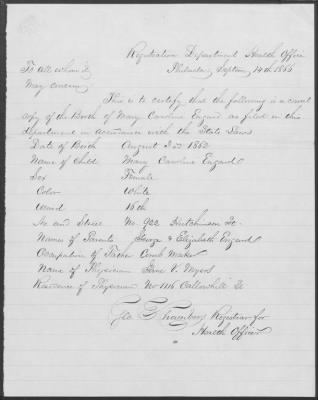 Registration Department Health Office
To all whom it Philada Septem 14th 1865
May concern
This is to certify that the following is a correct
copy of the Birth of Mary Caroline Engard as filed in this
department in accordance with the State Laws
Date of Birth August 1862
Name of Child Mary Caroline Engard
Sex Female
Color White
Ward 15th
No and Street No. 922 Hutchinson St.
Names of Parents George & Elizabeth Engard
Occupation of Father Comb Maker
Name of Physician Jane V. Myers
Residence of Physician No 1116 Callowhill St
Geo Registrar for
Health Officer